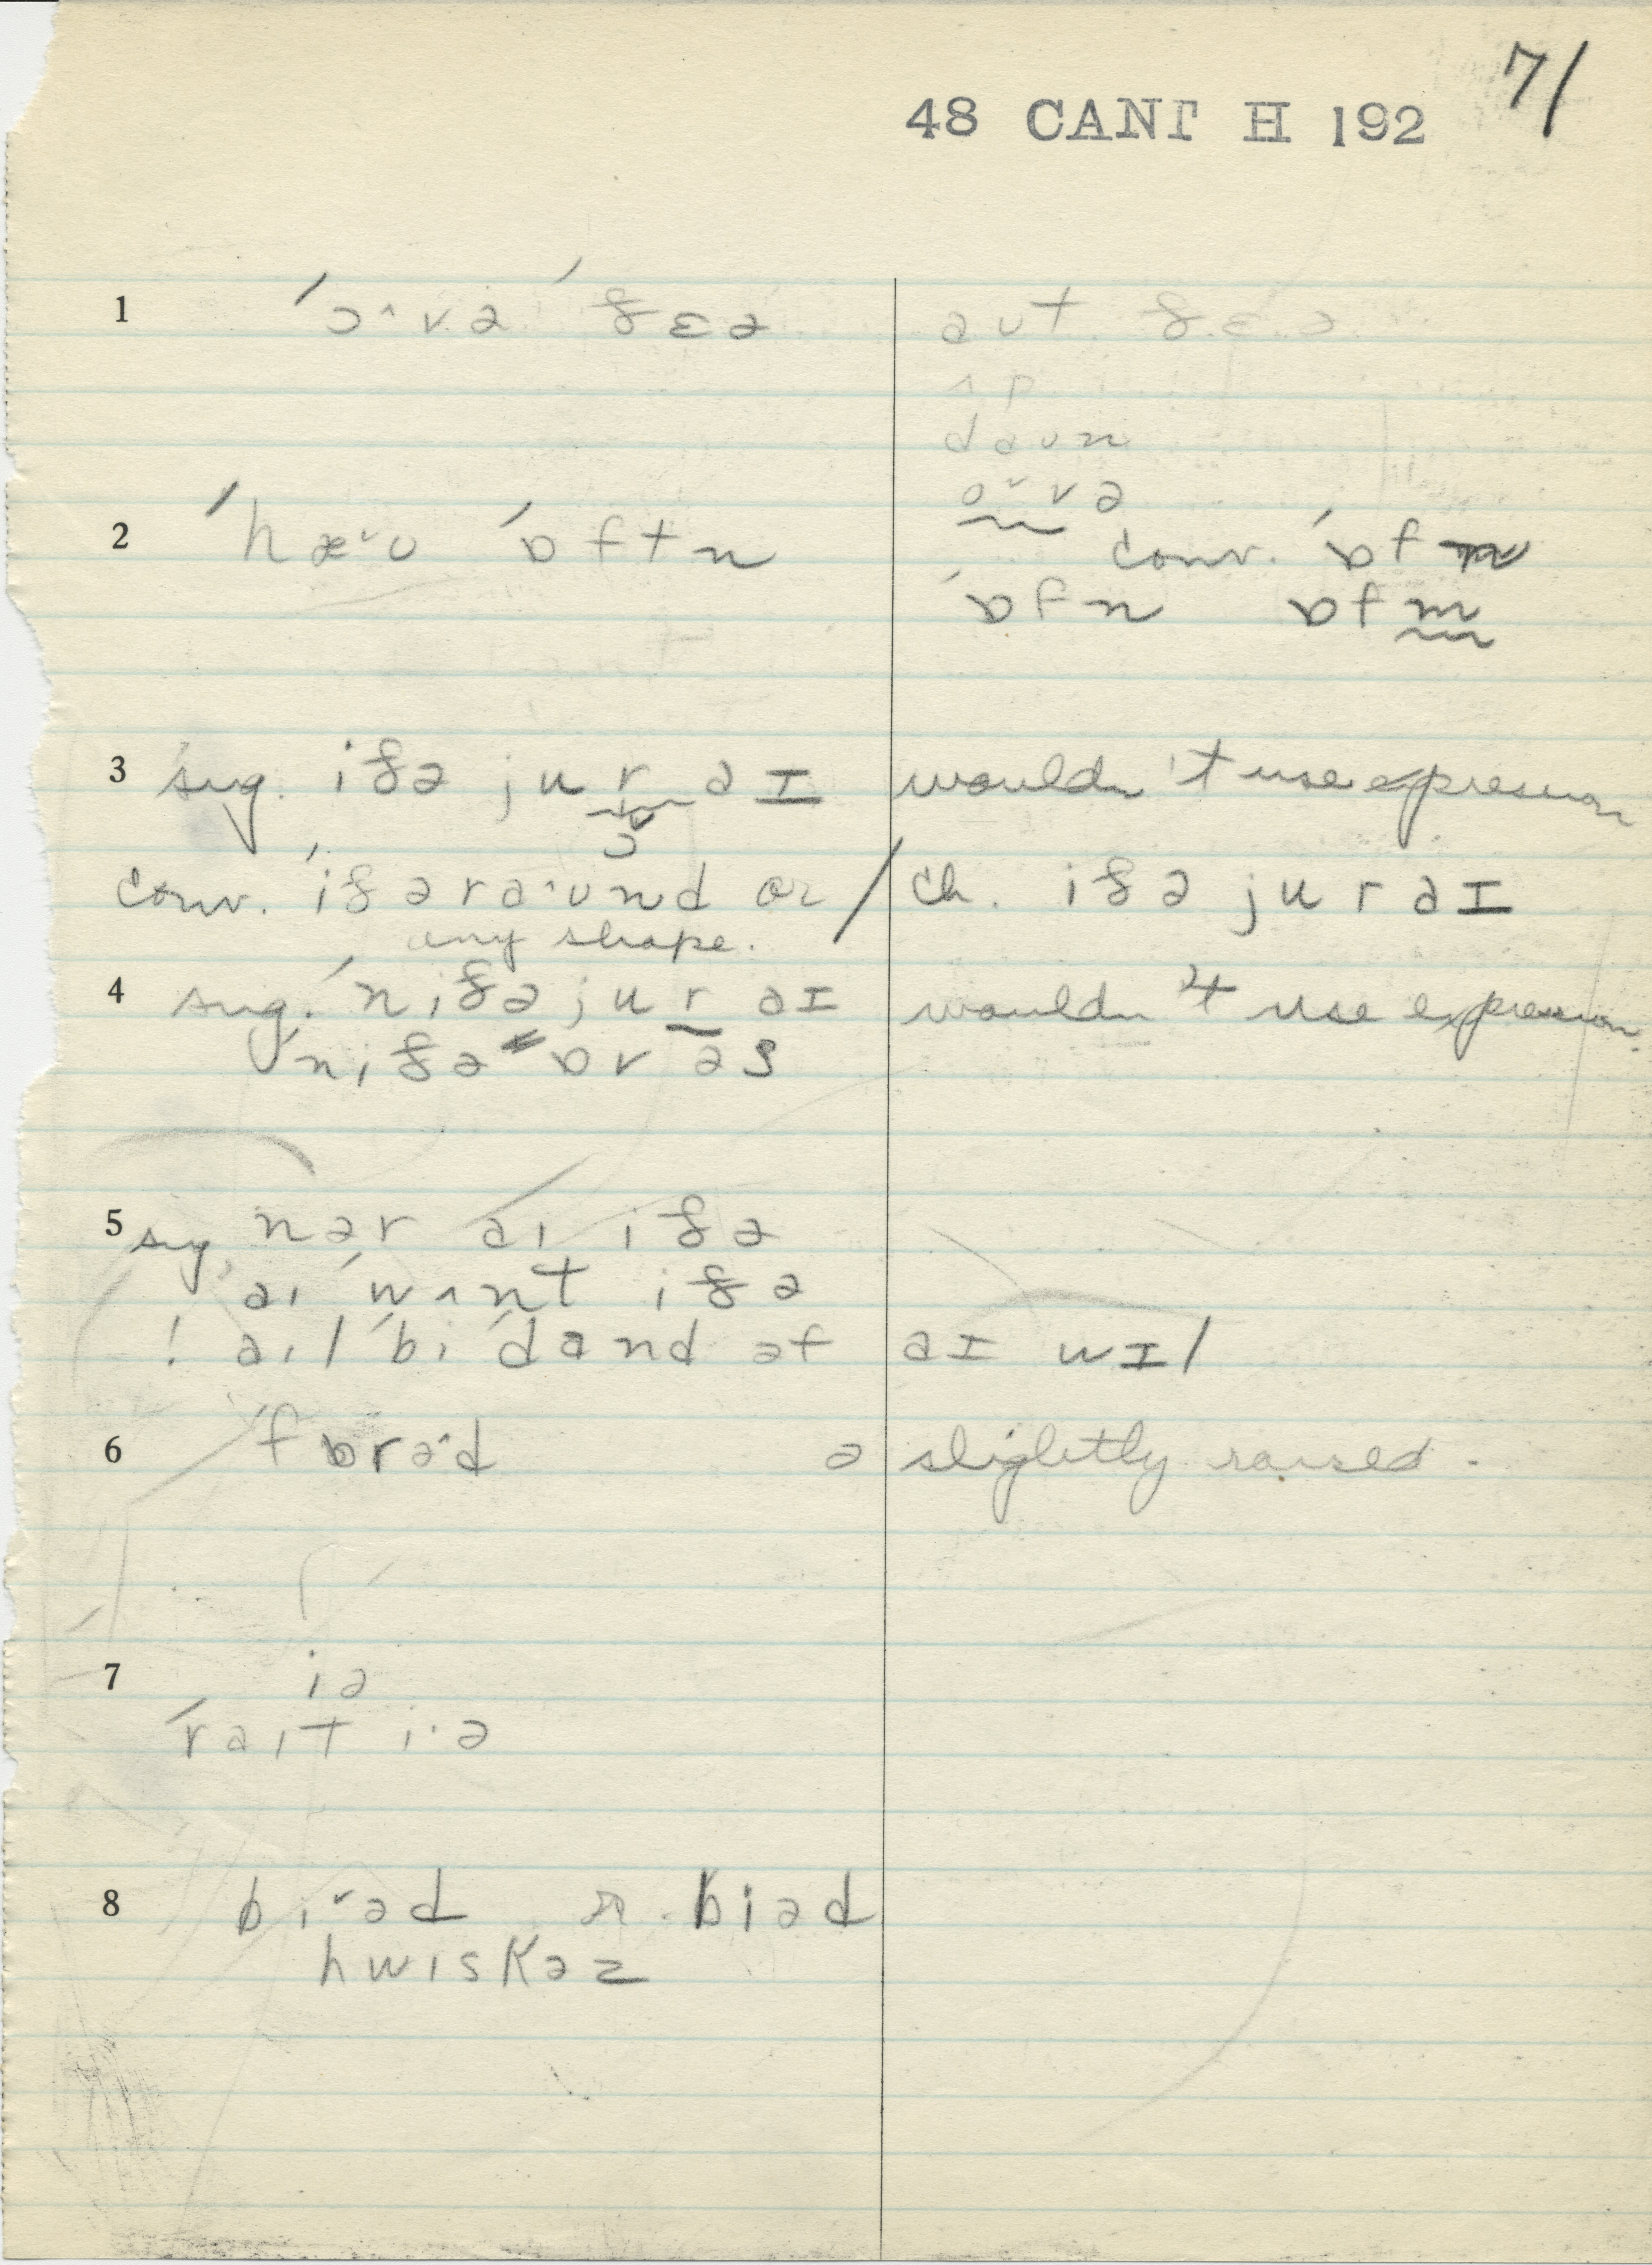 71
48 CANT H 192
1 ˈɔ˄və ˈðɛə aut ðɛə
ʌp
daun
o˅və
2 ˈhæ˅ʊ ˈɒftn conv. ˈɒf
ˈɒfn ɒfm
3 sug. iðə ju r aɪ wouldn't use expression
conv. ˈiðə raˑʊnd or / ch. iðə ju r aɪ
any shape.
4 sug. ˈniðə ju r aɪ wouldn't use expression.
ˈniðə ɒv əs
5 sug. nər aɪ iðə
aɪ ˈwʌnt iðə
! aɪl ˈbi ˈdɑnd əf aɪ wɪl
6 ˈfɒrəˑd ə slightly raised.
7 iə
ˈraɪt iˑə
8 bi˅əd r. biəd
hwiskəz